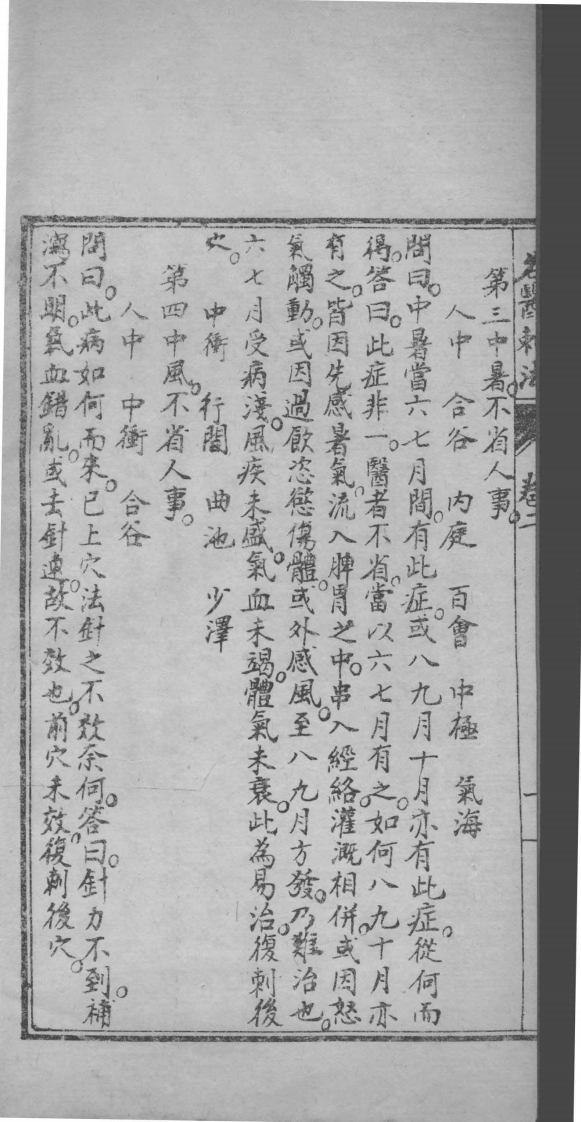 醫刺法 卷二 一
第三中暑。不省人事。
人中 合谷 內庭 百會 中極 氣海
問曰。中暑當六七月間。有此症。或八九月十月亦有此症。從何而
得。答曰。此症非一。醫者不省。當以六七月有之。如何八九十月亦
有之。皆因先感暑氣。流入脾胃之中。串入經絡灌溉相併。或因怒
氣觸動。或因過飲恣慾傷體。或外感風。至八九月方發。乃難治也。
六七月受病淺。風疾未盛。氣血未竭。體氣未衰。此為易治。復刺後
穴。 中衝 行間 曲池 少澤
第四中風。不省人事。
人中 中衝 合谷
問曰。此病如何而來。已上穴法針之不效奈何。答曰。針力不到。補
瀉不明。氣血錯亂。或去針速。故不效也。前穴未效。復刺後穴。